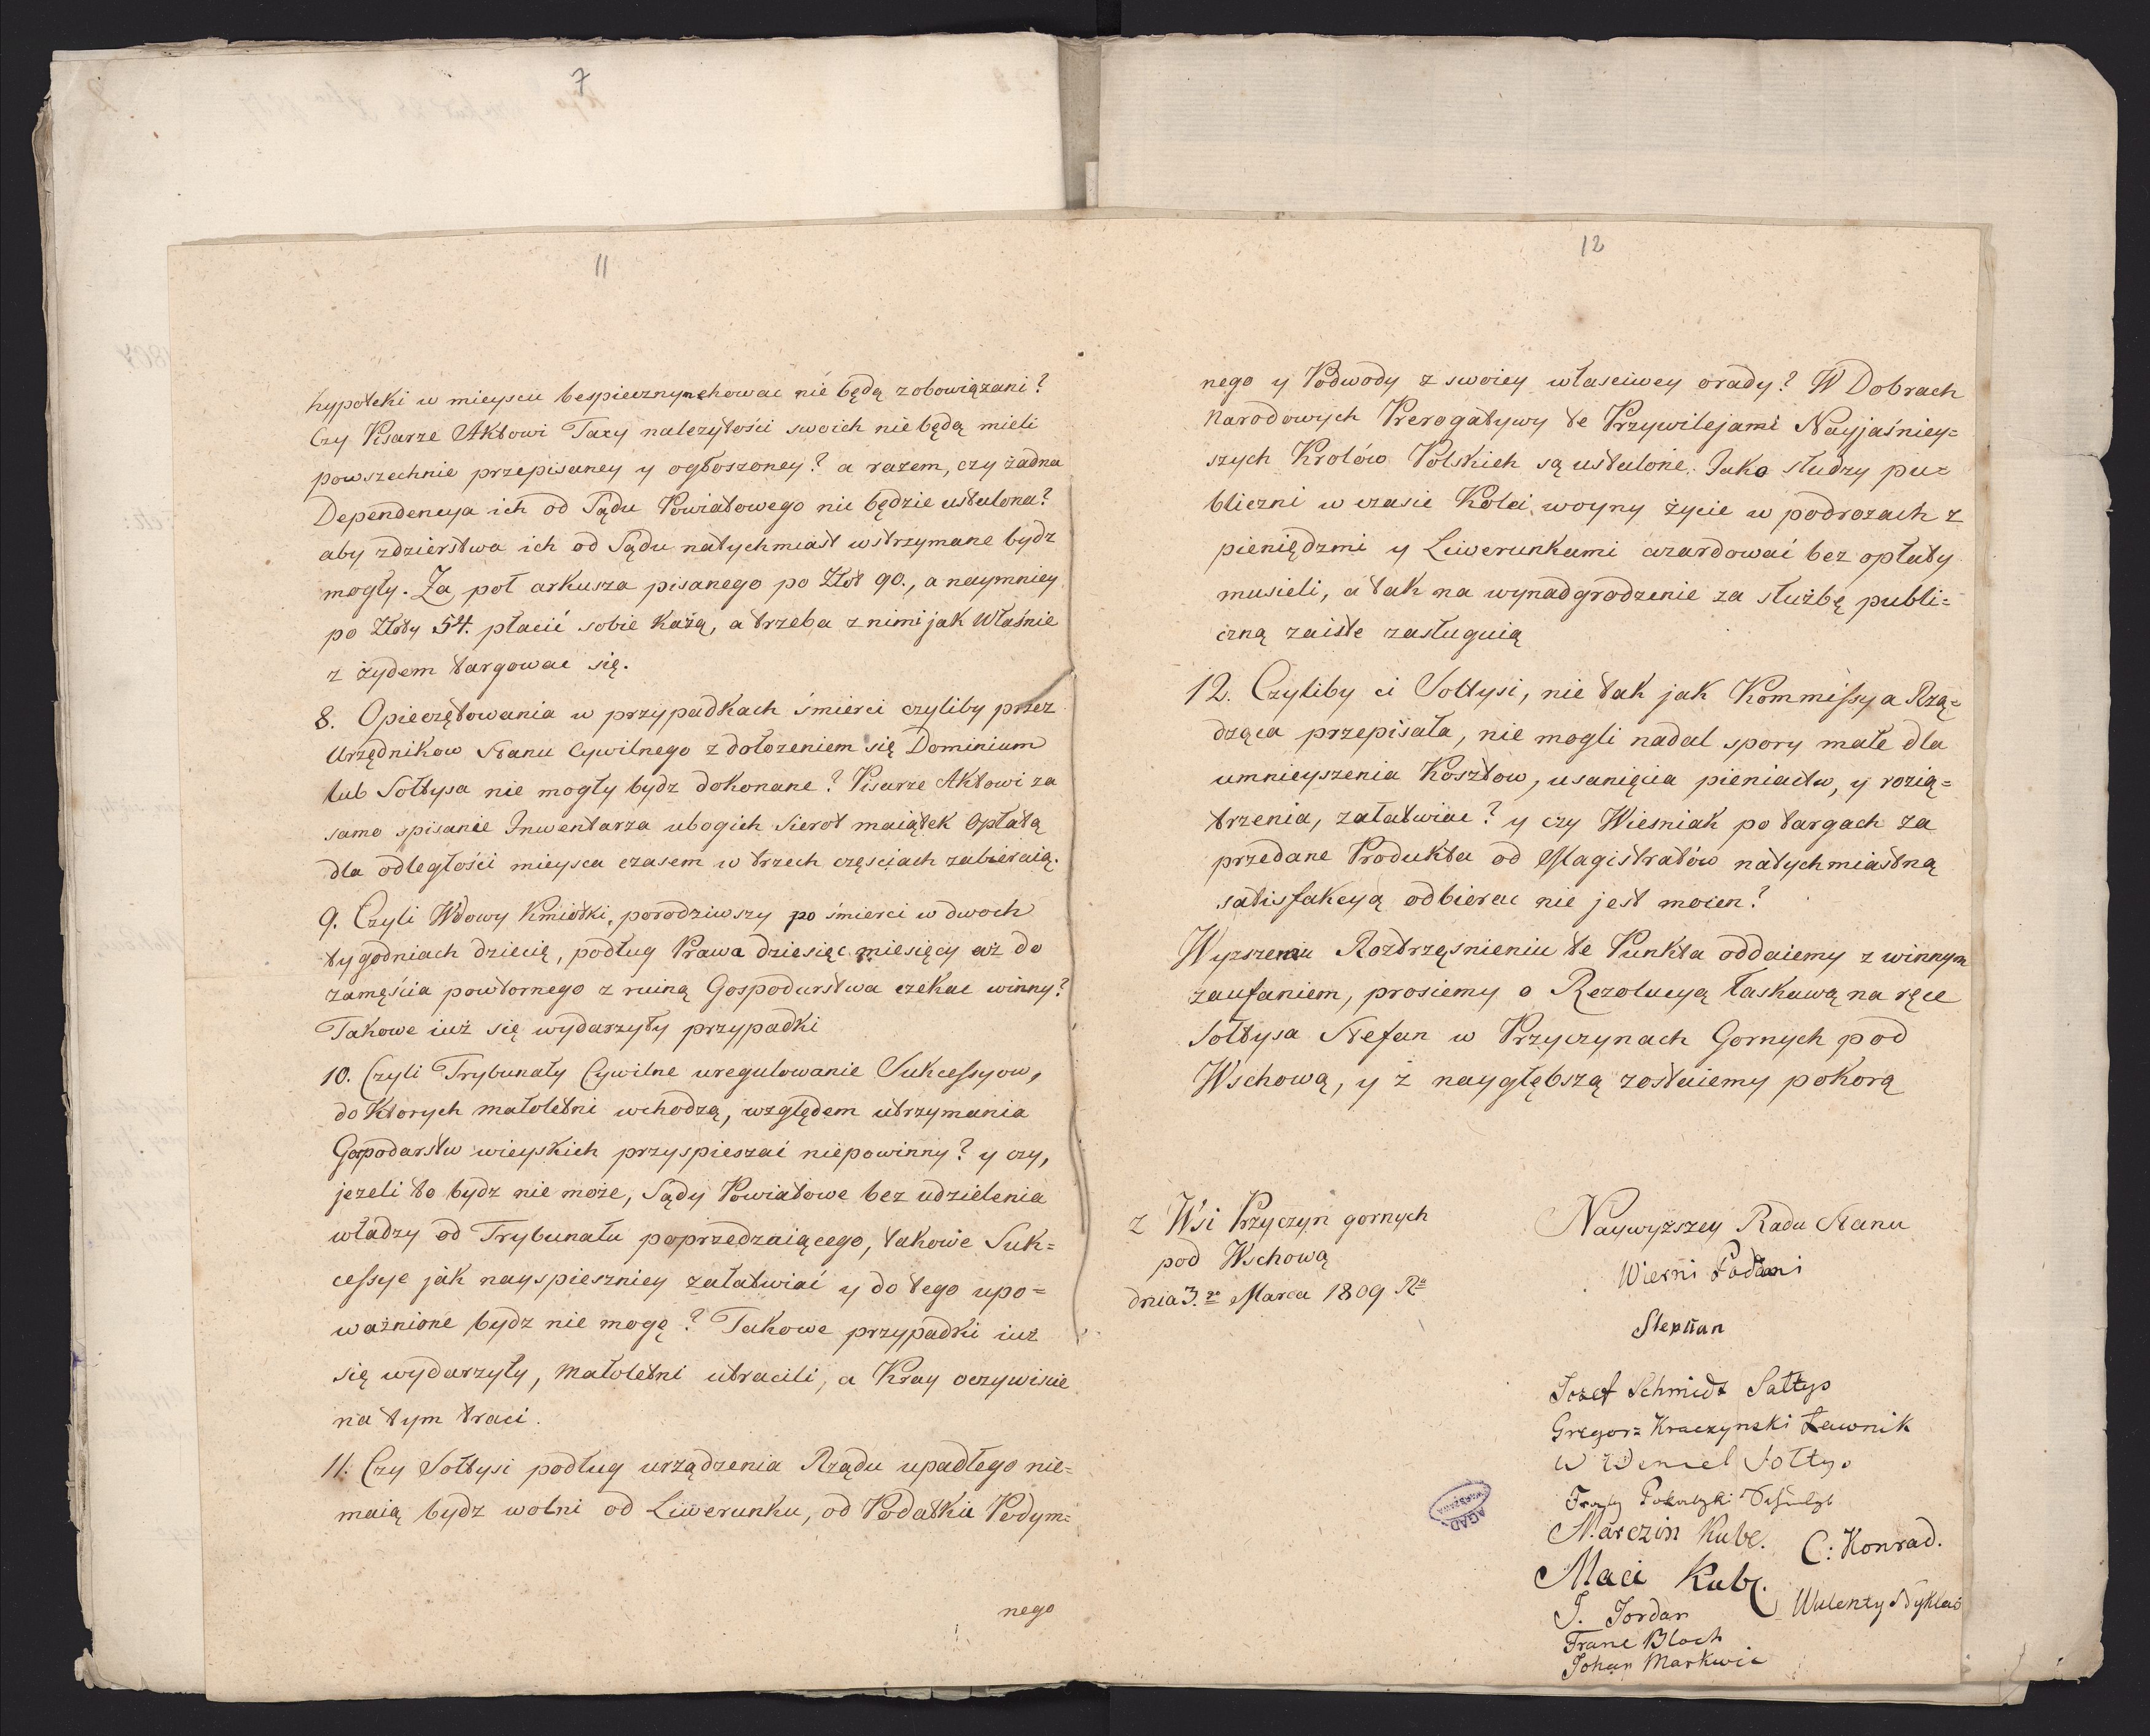 7
11
hypoteki w mieyscu bespiecznym chować nie będą zobowiązani?
Czy Pisarze Aktowi Taxy należytości swoich nie będą mieli
powszechnie przepisaney y ogłoszoney? a razem, czy żadna
Dependencya ich od Sądu Powiatowego nie będzie ustalona?
aby zdzierstwa ich od Sądu natychmiast wstrzymane bydz
mogły. Za poł arkusza pisanego po Złot 90., a naymniey
po Złoty 54. płacić sobie każą, a trzeba z nimi jak Właśnie
z żydem targować się.
8. Opieczętowania w przypadkach śmierci czyliby przez
Urzędnikow Stanu Cywilnego z dołozeniem się Dominium
lub Sołtysa nie mogły bydz dokonane? Pisarze Aktowi za
samo spisanie Inwentarza ubogich Sierot maiątek Opłatą
dla odległości mieysca czasem w trzech częsciach zabieraią.
9. Czyli Wdowy Kmiotki, porodziwszy po śmierci w dwoch
tygodniach dziecię, podług Prawa dziesięc miesięcy aż do
zamęścia powtornego z ruiną Gospodarstwa czekac winny?
Takowe iuż się wydarzyły przypadki
10. Czyli Trybunały Cywilne uregulowanie Sukcessyow,
do Ktorych małoletni wchodzą, względem utrzymania
Gospodarstw wieyskich przyspieszać niepowinny? y czy,
jezeli to bydz nie może, Sądy Powiatowe bez udzielenia
władzy od Trybunału poprzedzaiącego, takowe Suk=
cessye jak nayspieszniey załatwiać y do tego upo=
ważnione bydz nie mogę? Takowe przypadki iuż
się wydarzyły, Małoletni utracili, a Kray oczywiscie
na tym traci.
11. Czy Sołtysi podług urządzenia Rządu upadłego nie=
maią bydz wolni od Liwerunku, od Podatku Podym=
nego
12
nego y Podwody z swoiey własciwey orady? W Dobrach
Narodowych Prerogatywy te Przywilejami Nayjaśniey=
szych Krolów Polskich są ustalone. Jako słudzy pu=
bliczni w czasie Kolei woyny życie w podrozach z
pieniędzmi y Liwerunkami azardować bez opłaty
musieli, a tak na wynadgrodzenie za służbę publi=
czną zaiste zasługuią
12. Czyliby ci Sołtysi, nie tak jak Kommissya Rzą=
dząca przepisała, nie mogli nadal spory małe dla
umnieyszenia Kosztow, usanięcia pieniactw, y rozią=
trzenia, załatwiac? y czy Wiesniak po targach za
przedane Produkta od Magistratów natychmiastną
satisfakcyą odbierac nie jest mocen?
Wyzszemu Roztrzęsnieniu te Punkta oddaiemy z winnym
zaufaniem, prosiemy o Rezolucyą łaskawą na ręce
Sołtysa Stefan w Przyczynach Gornych pod
Wschową, y z naygłębszą zostaiemy pokorą
z Wsi Przyczyn gornych
pod Wschową
dnia 3.go Marca 1809 Ru
Naywyższey Radu Stanu
Wierni Poddani
Stephan
Jozef Schmidt Sałtys
Gregorz Kraczynski Ławnik
W Wencel Sołtys
Marczin Kube.
C: Konrad.
Maci Kube.
Walenty Nyklas
J. Jordan
Franc Bloch
Johan Markwic
AGAD
WARSZAWA